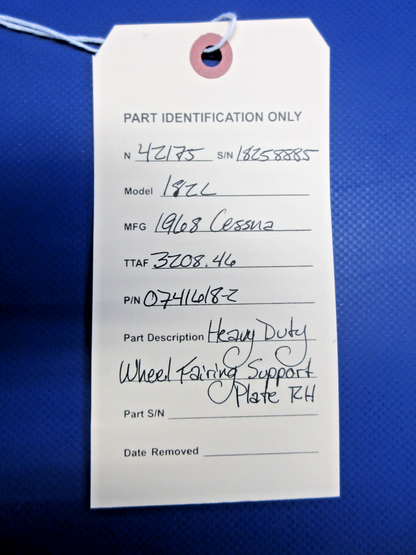 PART IDENTIFICATION ONLY
N 42175 S/N 18258885
Model 182L
MFG 1968 Cessna
TTAF 3208.46
P/N 0741618-2
Part Description Heavy Duty
Wheel Fairing Support
Plate RH
Part S/N
Date Removed